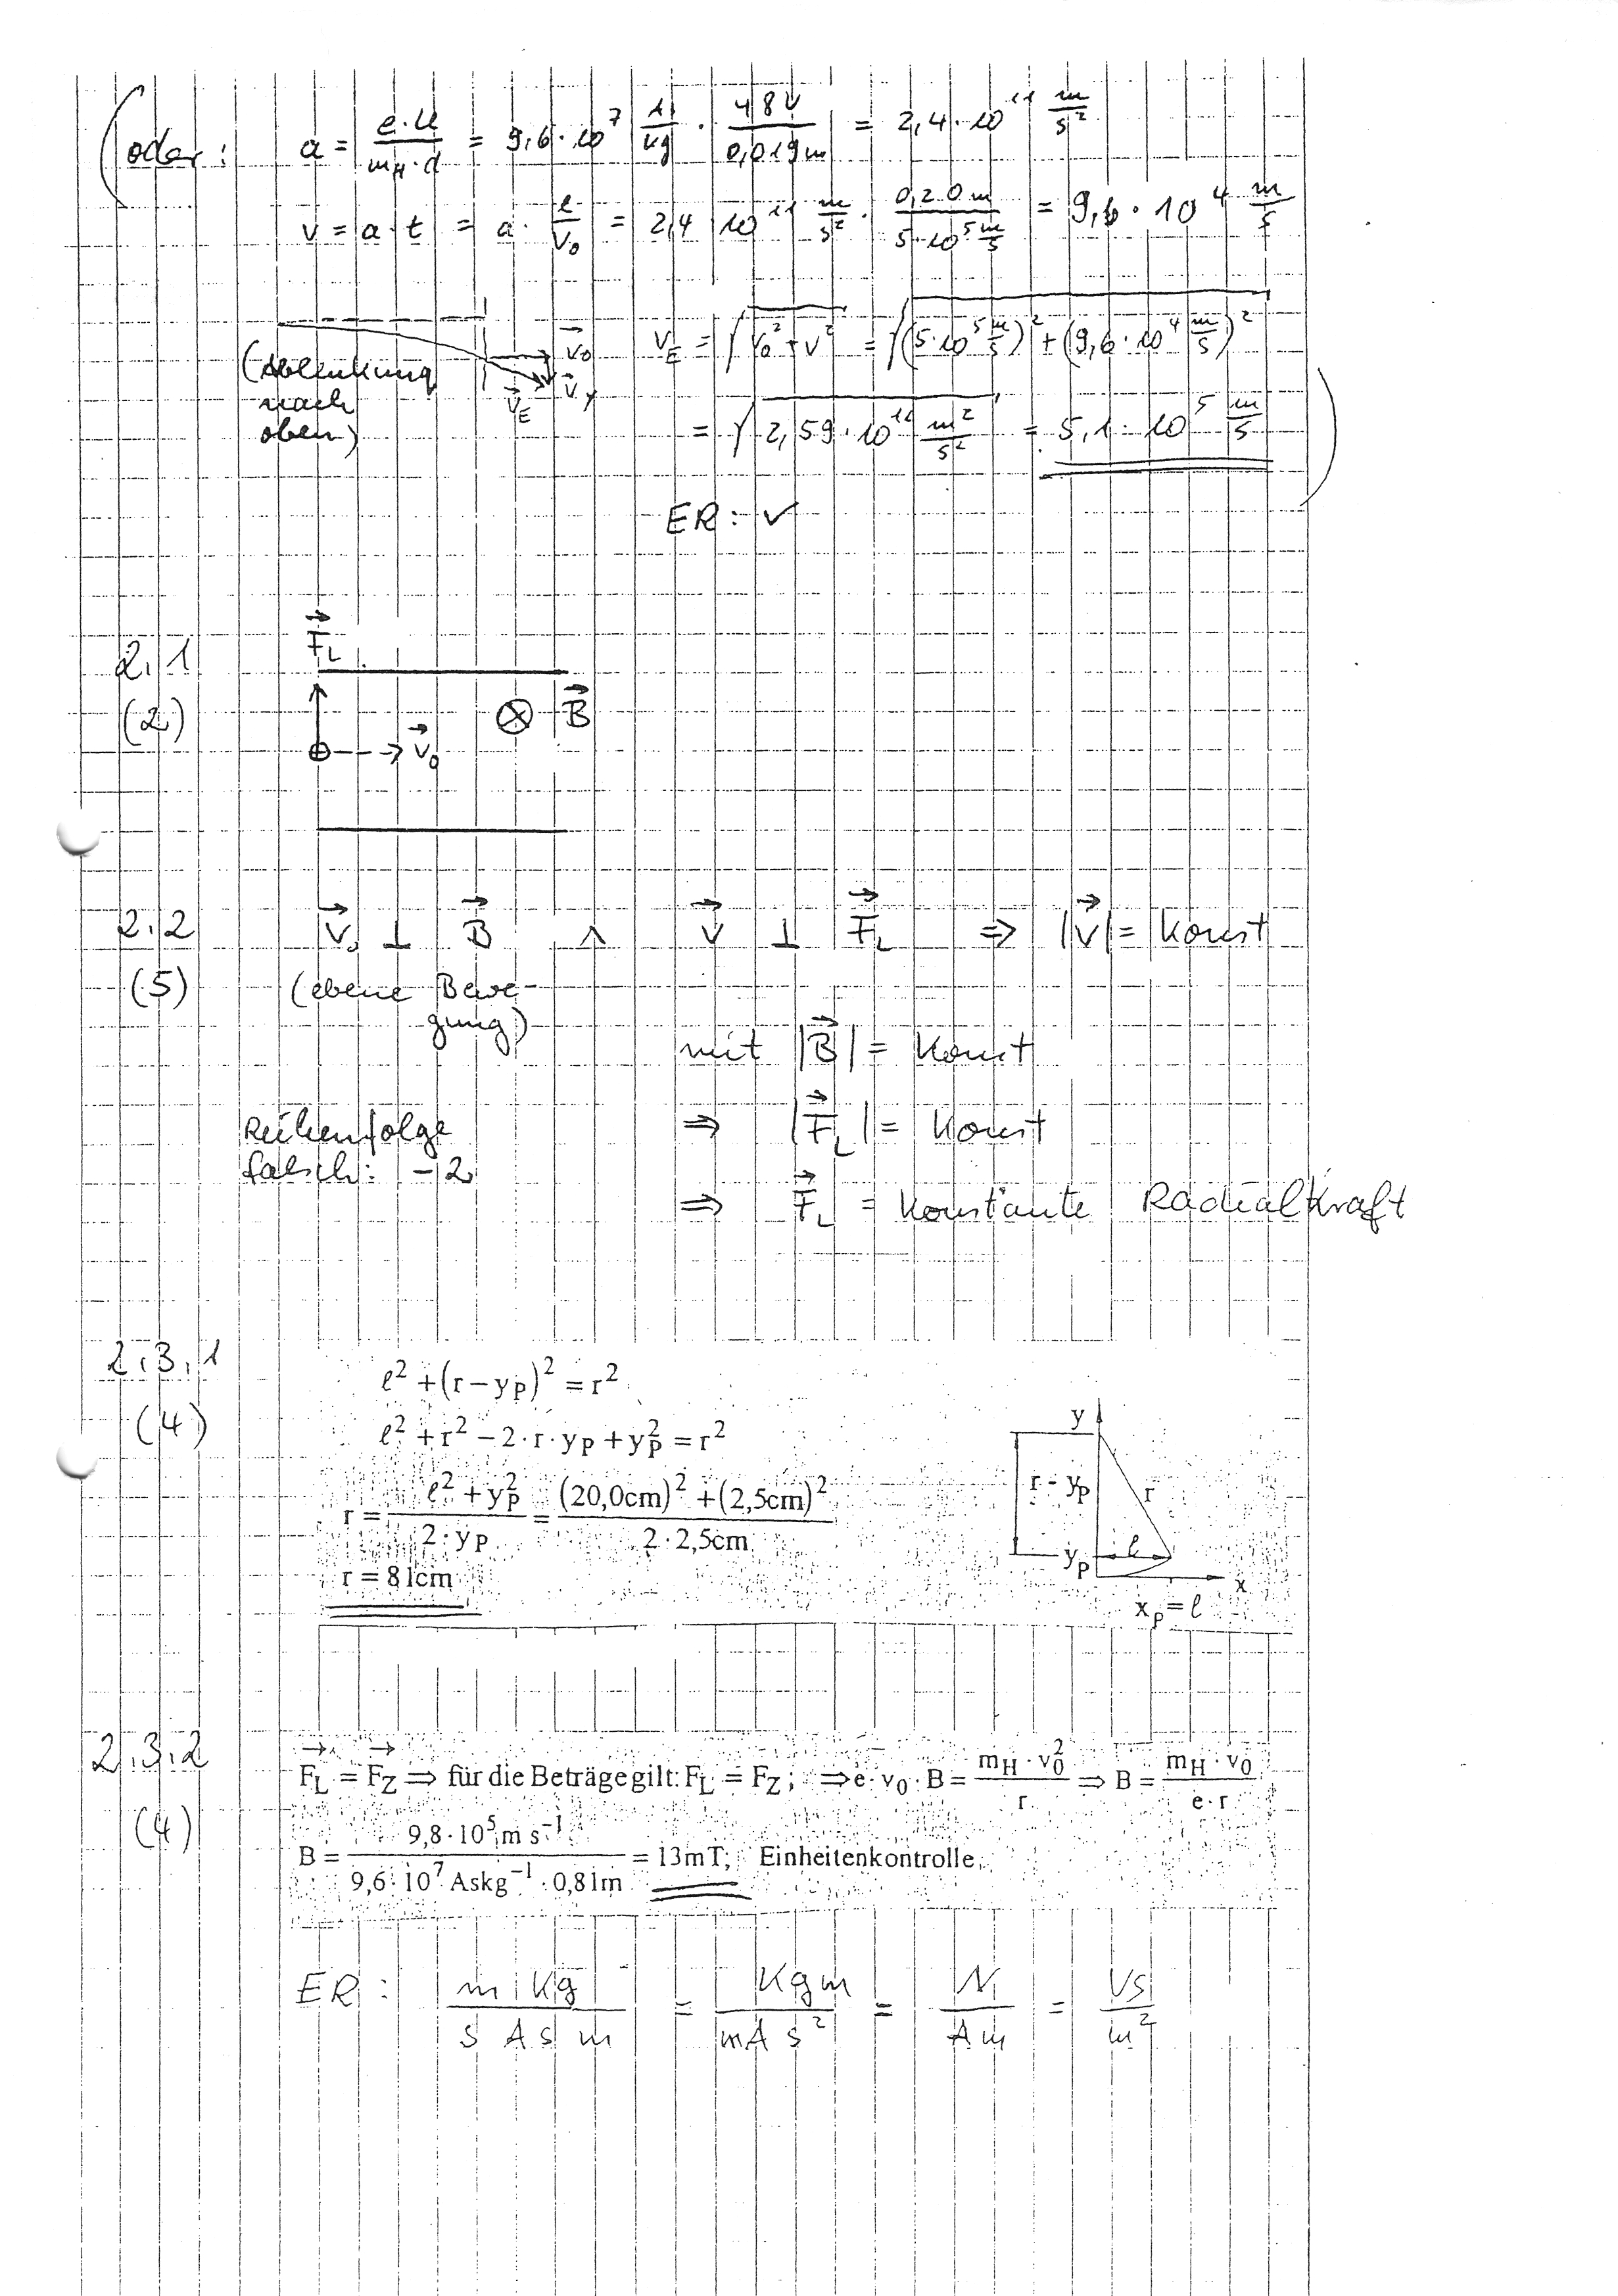 (oder: a = e·U / (m_H·d) = 9,6·10^7 As/kg · 48V / 0,019m = 2,4·10^11 m/s²
v = a·t = a · l/v₀ = 2,4 · 10^11 m/s² · 0,20m / (5·10^5 m/s) = 9,6·10^4 m/s
v_E = √(v₀² + v²) = √((5·10^5 m/s)² + (9,6·10^4 m/s)²)
(Ablenkung
nach
oben)
v₀
v_y
v_E
= √(2,59·10^11 m²/s²) = 5,1·10^5 m/s)
ER: ✓
2.1
(2)
F_L
⊗ B
v₀
2.2
(5)
v₀ ⊥ B ∧ v ⊥ F_L ⇒ |v| = konst
(ebene Bewe-
gung)
mit |B| = konst
Reihenfolge
falsch: -2
⇒ |F_L| = konst
⇒ F_L = konstante Radialkraft
2.3.1
(4)
ℓ² + (r − y_P)² = r²
ℓ² + r² − 2·r·y_P + y_P² = r²
r = (ℓ² + y_P²) / (2·y_P) = ((20,0cm)² + (2,5cm)²) / (2·2,5cm)
r = 81cm
y
r − y_P
r
y_P
ℓ
x
x_P = ℓ
2.3.2
(4)
F_L = F_Z ⇒ für die Beträge gilt: F_L = F_Z; ⇒ e·v₀·B = m_H·v₀² / r ⇒ B = m_H·v₀ / (e·r)
B = 9,8·10^5 m s^−1 / (9,6·10^7 Askg^−1·0,81m) = 13mT; Einheitenkontrolle
ER: m kg / (s As m) = kg m / (mA s²) = N / (A m) = Vs / m²